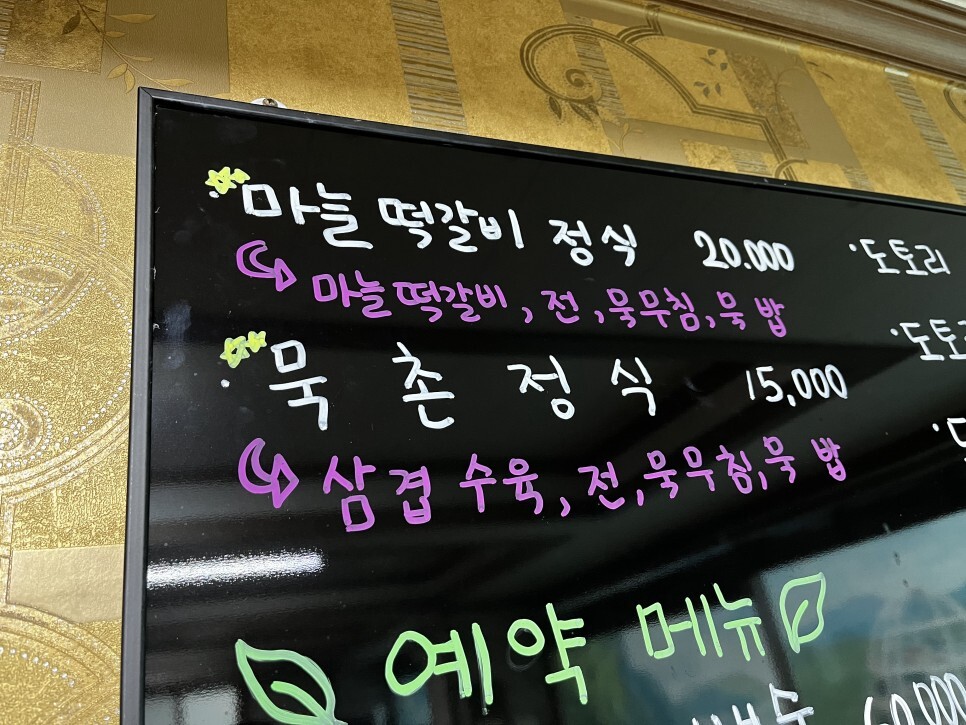 마늘 떡갈비 정식 20.000
마늘떡갈비, 전, 묵무침, 묵밥
묵촌정식 15,000
삼겹수육, 전, 묵무침, 묵밥
예약 메뉴
·도토리